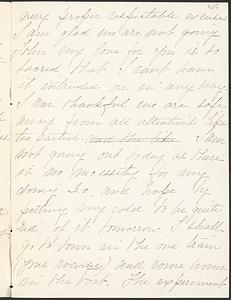 very proper respectable excuse.
I am glad we are not going
John my love for you is so
sacred that I can't have
it intruded on in any way.
I am thankful we are safe
away from all attention
and the like. I am
not going out today as there
is no necessity for my
doing so, and hope by
petting my cold to be quite
rid of it tomorrow. I shall
go to town in the one train
(your) and come home
in the boat. The experiment